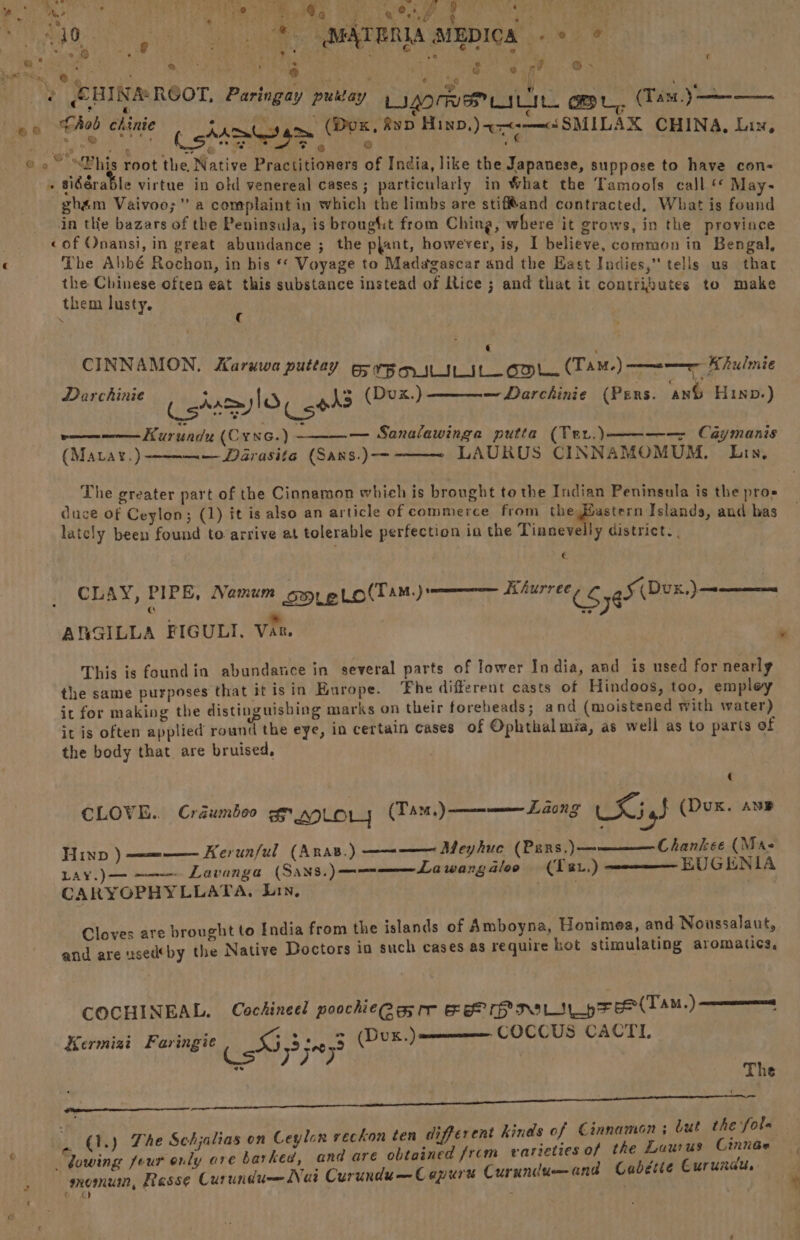 10 MATERIA MEDICA
CHINA ROOT, Paringay puttay (Tam.)
Chob chinie (Duk. And Hind.) SMILAX CHINA, Lin,
This root the Native Practitioners of India, like the Japanese, suppose to have con-
sidérable virtue in old venereal cases; particularly in what the Tamools call “ May-
ghẻm Vaivoo;” a complaint in which the limbs are stiff and contracted, What is found
in the bazars of the Peninsula, is brought from China, where it grows, in the province
of Onansi, in great abundance ; the plant, however, is, I believe, common in Bengal,
The Abbé Rochon, in his “ Voyage to Madagascar and the East Indies,” tells us that
the Chinese often eat this substance instead of Rice ; and that it contributes to make
them lusty.
CINNAMON, Karuwa puttay (Tam.) Khulmie
Darchinie (Duk.) Darchinie (Pers. and Hind.)
Kurundu (Cyng.) Sanalawinga putta (Tel.) Caymanis
(Malay.) Dārasita (Sans.) LAURUS CINNAMOMUM, Lin,
The greater part of the Cinnamon which is brought to the Indian Peninsula is the pro-
duce of Ceylon; (1) it is also an article of commerce from the Eastern Islands, and has
lately been found to arrive at tolerable perfection in the Tinnevelly district.
CLAY, PIPE, Namum (Tam.) Khurree (Duk.)
ARGILLA FIGULI. Var.
This is found in abundance in several parts of lower India, and is used for nearly
the same purposes that it is in Europe. The different casts of Hindoos, too, employ
it for making the distinguishing marks on their foreheads; and (moistened with water)
it is often applied round the eye, in certain cases of Ophthalmia, as well as to parts of
the body that are bruised,
CLOVE. Crāumboo (Tam.) Lāong (Duk. and
Hind ) Kerunful (Arab.) Meyhuc (Pers.) Chankee (Ma-
lay.) Lavanga (Sans.) Lawangāloo (Tel.) EUGENIA
CARYOPHYLLATA, Lin,
Cloves are brought to India from the islands of Amboyna, Honimoa, and Noussalaut,
and are used by the Native Doctors in such cases as require hot stimulating aromatics,
COCHINEAL. Cochineel poochie (Tam.)
Kermizi Faringie (Duk.) COCCUS CACTI,
The
(1.) The Schjalias on Ceylon reckon ten different kinds of Cinnamon ; but the fol-
lowing four only are barked, and are obtained from varieties of the Laurus Cinna-
momum, Rasse Curundu—Nai Curundu—Capuru Curundu—and Cabétte Curundu.